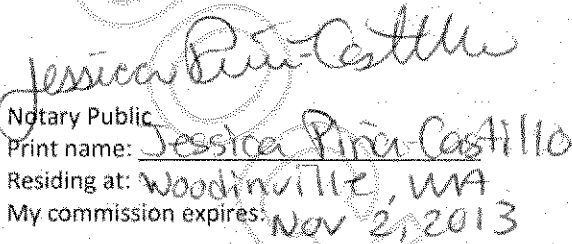 Jessica Piña-Castillo
Notary Public
Print name: Jessica Piña-Castillo
Residing at: Woodinville, WA
My commission expires: Nov 2, 2013